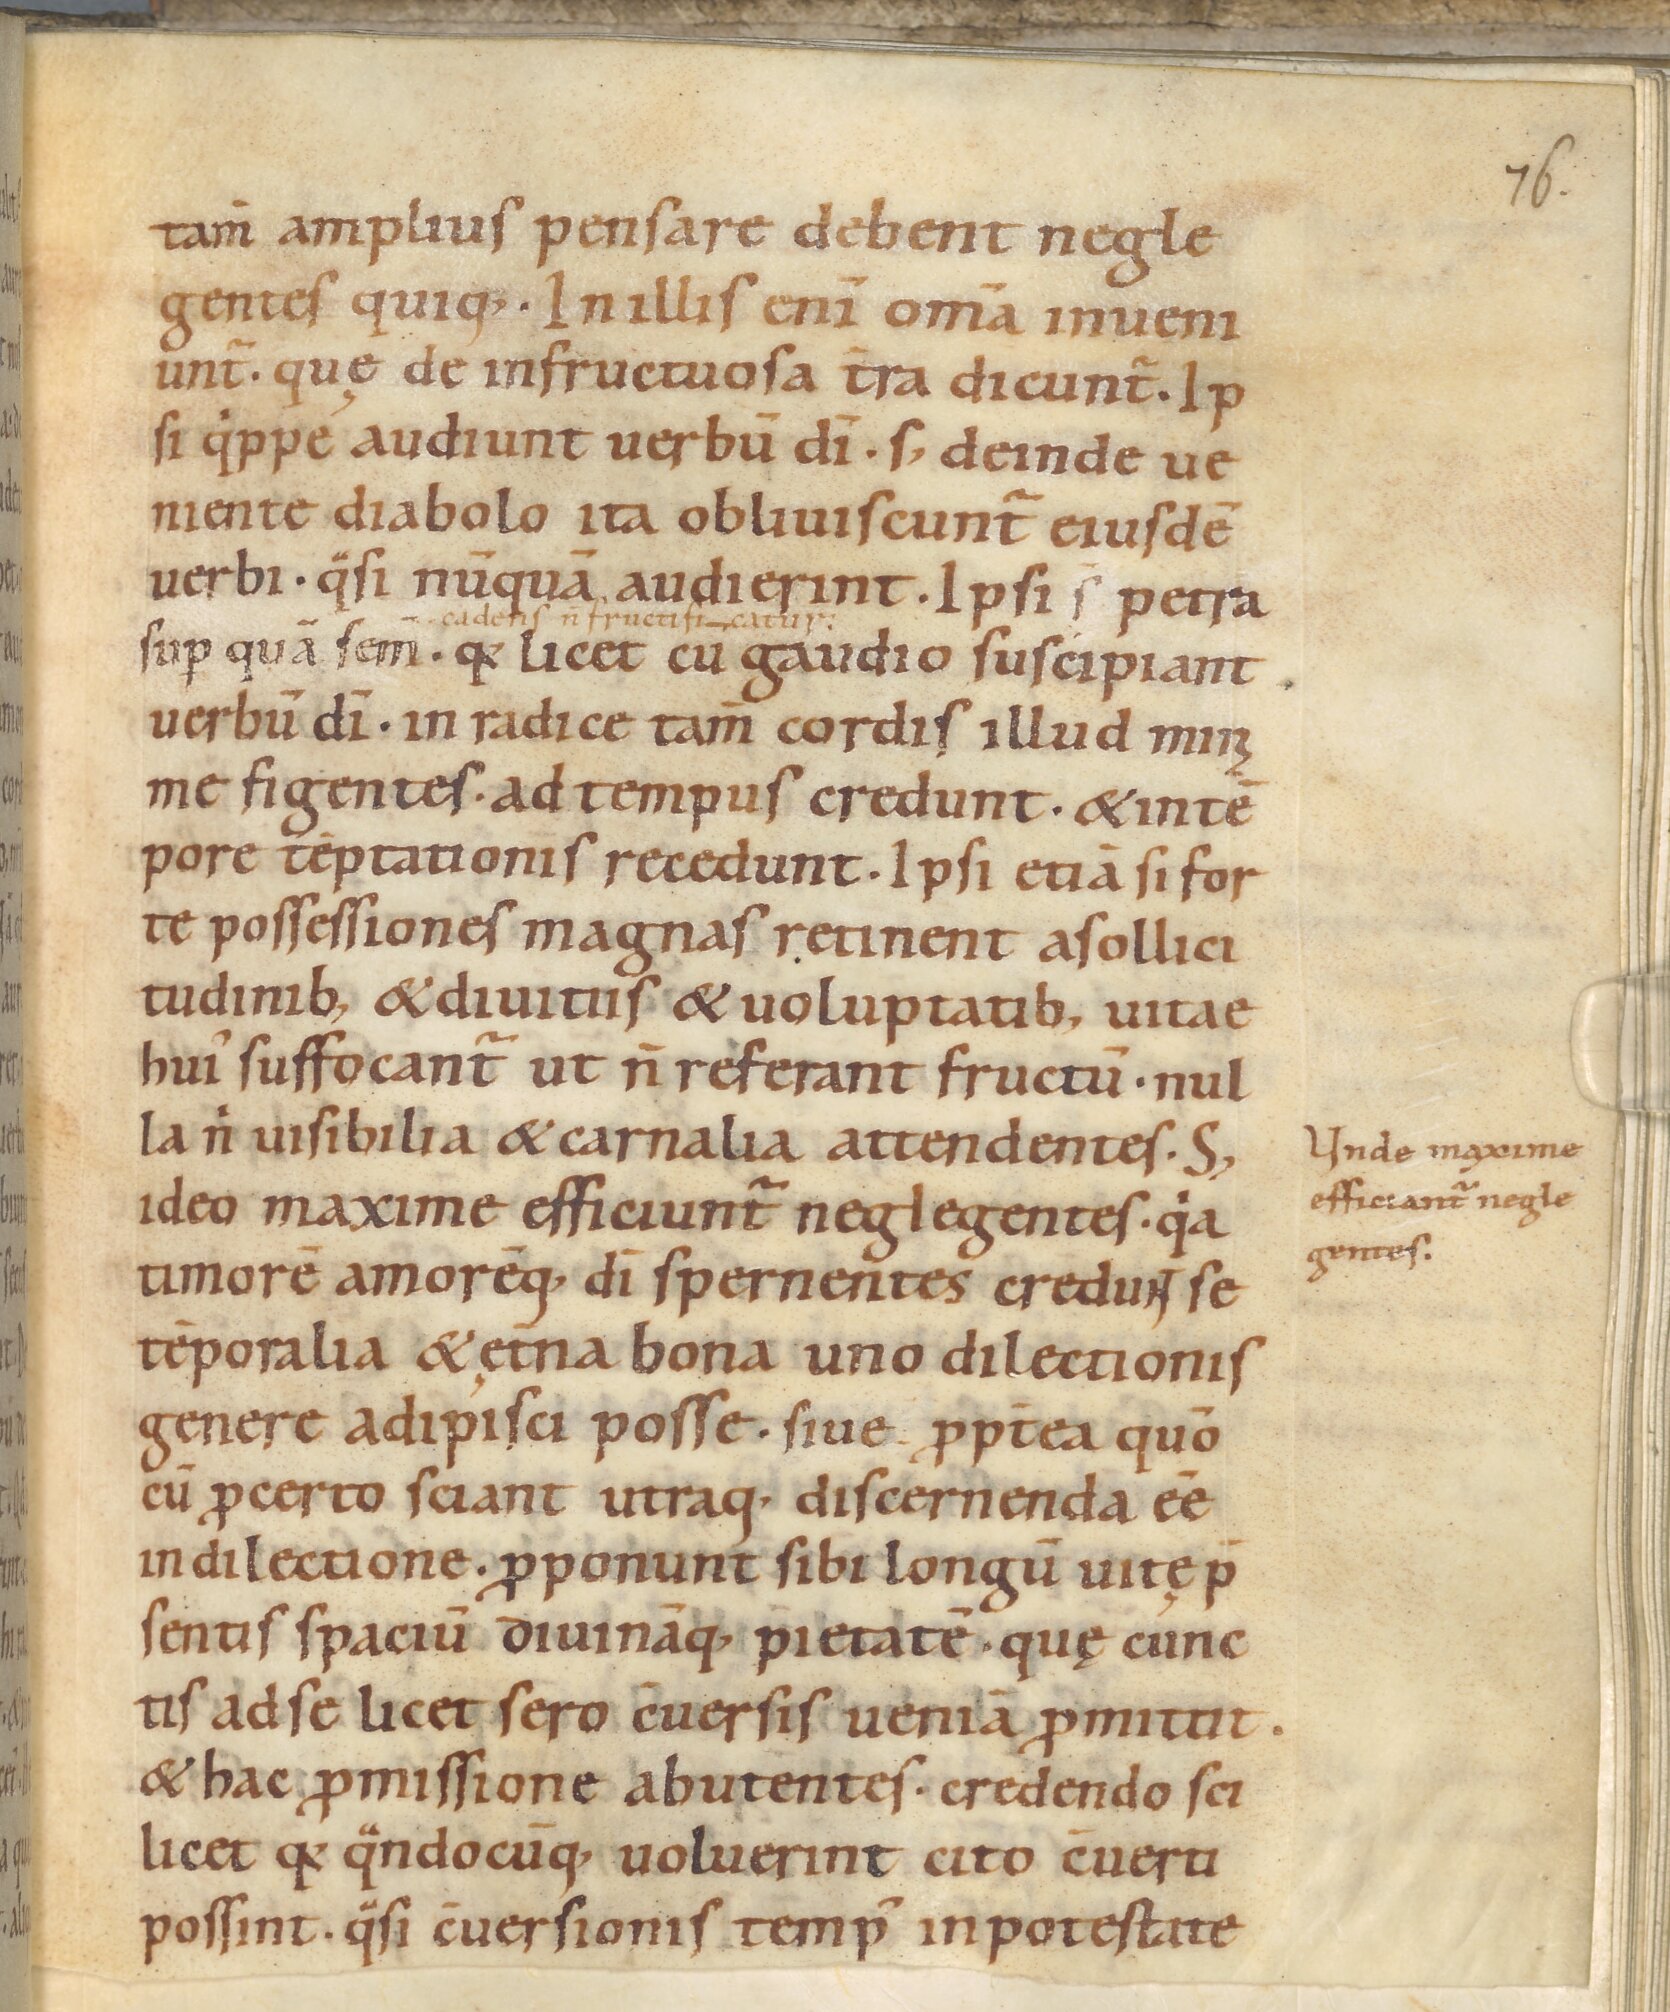 76.
tam̄ amplius pensare debent negle
gentes quiq;. In illis eni̅ om̅a inueni
unt̃. quę de infructuosa t̅ra dicunt̃. Ip
si qͥppe audiunt uerbū dī. s; deinde ue
niente diabolo ita obliuiscunt̃ eiusdē
uerbi. qͣsi nūquā audierint. Ipsi s̄ petra
cadens n̄ fructificatur.
sup quā sem̄. qꝫ licet cū gaudio suscipiant
uerbū dī. in radice tam̄ cordis illud mini
me figentes. ad tempus credunt. & in tē
pore tēptationis recedunt. Ipsi etiā si for
te possessiones magnas retinent a sollici
tudinib; & diuitiis & uoluptatib; uitae
hui᾽ suffocant̃ ut n̄ referant fructū. nul
la nͥ uisibilia & carnalia attendentes. S;
ideo maxime efficiunt̃ neglegentes. qͥa
timorē amorēq; dī spernentes credunt se
tēporalia & ęt̄na bona uno dilectionis
genere adipisci posse. siue ꝓpt̄ea quō
cū ꝓcerto sciant utraq; discernenda ēē
in dilectione. ꝓponunt sibi longū uitę p̄
sentis spaciū diuināq; pietatē. quę cunc
tis ad se licet sero c̄uersis ueniā ꝓmittit.
& hac ꝓmissione abutentes. credendo sci
licet qꝫ qͣndocūq; uoluerint cito c̄uerti
possint. qͣsi c̄uersionis temp᾽ in potestate
Unde maxime
efficiant̃ negle
gentes.